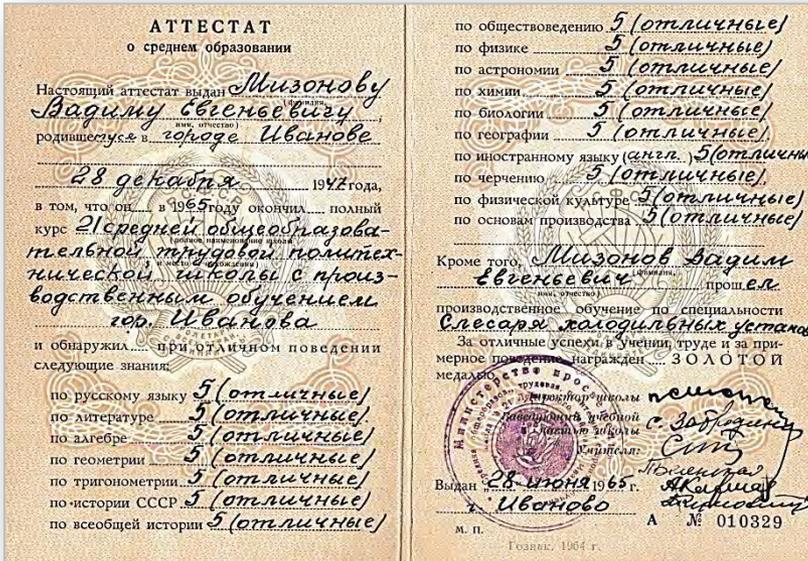 АТТЕСТАТ
о среднем образовании
Настоящий аттестат выдан Мизонову
(фамилия,
Вадиму Евгеньевичу,
имя, отчество)
родившемуся в городе Иванове
28 декабря 1947 года,
в том, что он в 1965 году окончил полный
курс 21 средней общеобразова-
(полное наименование школы
тельной трудовой политех-
и место нахождения)
нической школы с произ-
водственным обучением
гор. Иванова
и обнаружил при отличном поведении
следующие знания:
по русскому языку 5 (отличные)
по литературе 5 (отличные)
по алгебре 5 (отличные)
по геометрии 5 (отличные)
по тригонометрии 5 (отличные)
по истории СССР 5 (отличные)
по всеобщей истории 5 (отличные)
по обществоведению 5 (отличные)
по физике 5 (отличные)
по астрономии 5 (отличные)
по химии 5 (отличные)
по биологии 5 (отличные)
по географии 5 (отличные)
по иностранному языку (англ.) 5 (отличны
по черчению 5 (отличные)
по физической культуре 5 (отличные)
по основам производства 5 (отличные)
Кроме того, Мизонов Вадим
(фамилия,
Евгеньевич прошел
имя, отчество)
производственное обучение по специальности
Слесаря холодильных установ
За отличные успехи в учении, труде и за при-
мерное поведение награжден ЗОЛОТОЙ
медалью.
Министерство прос
Директор школы
Заведующий учебной
частью школы
Учителя:
Выдан 28 июня 1965 г.
г. Иваново
М. П.
А № 010329
Гознак. 1964 г.